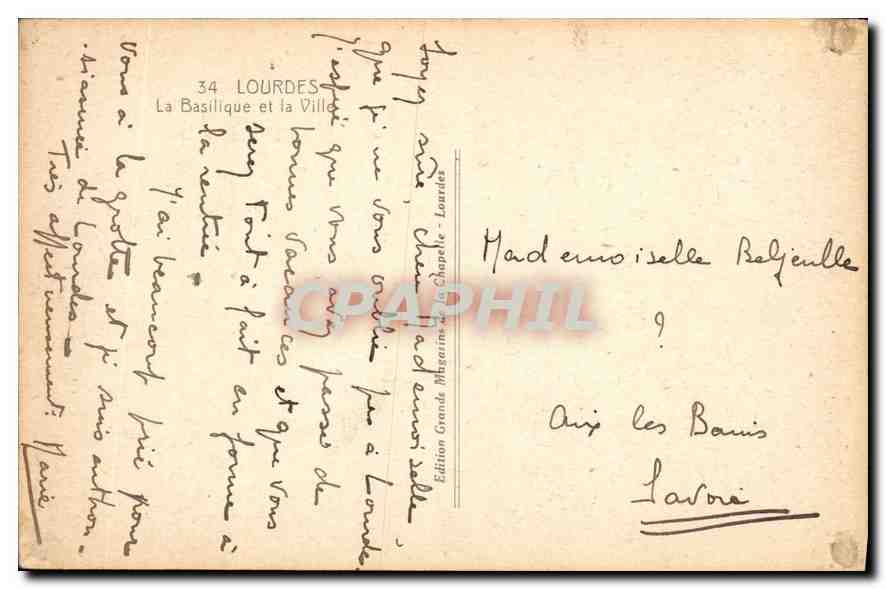 34 LOURDES
La Basilique et la Ville
Soyez sûre, chère Mademoiselle,
que je ne vous oublie pas à Lourdes.
J'espère que vous avez passé de
bonnes vacances et que vous
serez tout à fait en forme à
la rentrée.
J'ai beaucoup prié pour
vous à la grotte et je suis enthou-
siasmée de Lourdes -
Très affectueusement. Marie
Edition Grands Magasins de la Chapelle - Lourdes
Mademoiselle
?
Aix les Bains
Savoie
CPAPHIL